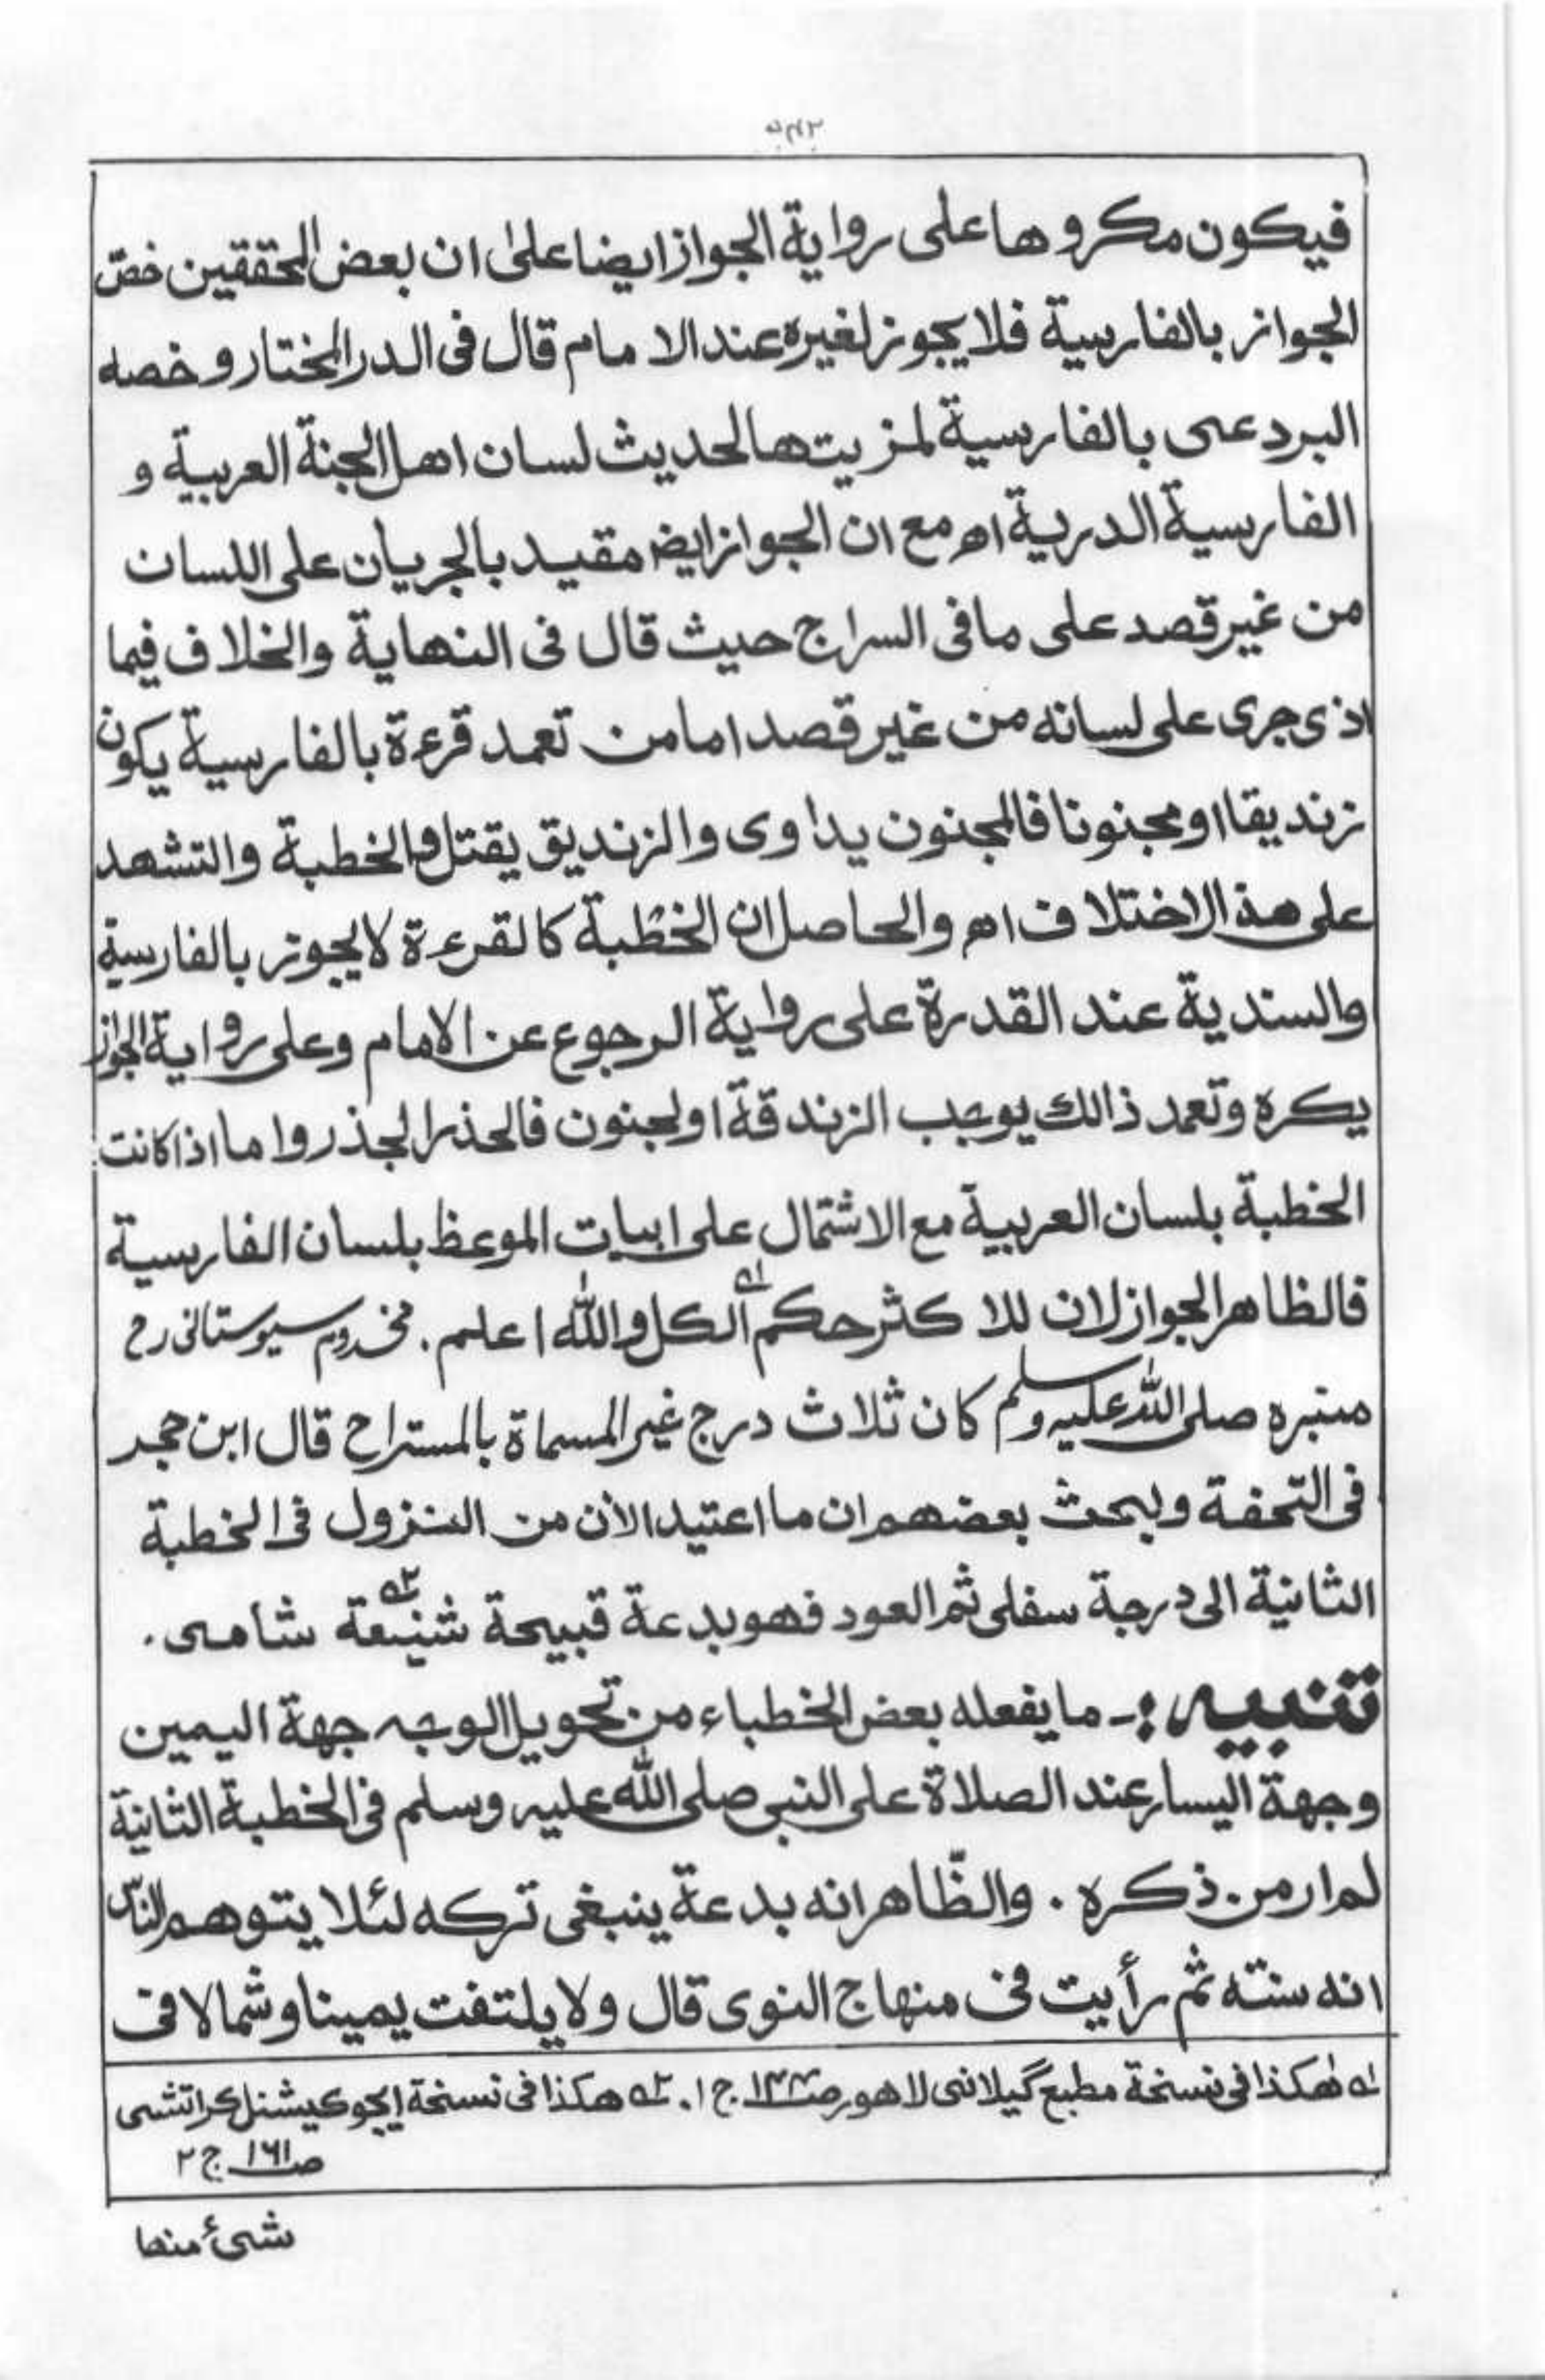 فيكون مكروها على رواية الجواز ايضا على ان بعض المحققين خصّ
الجواز بالفارسية فلا يجوز لغيره عند الامام قال فى الدر المختار و خصه
البردعى بالفارسية لمزيتها لحديث لسان اهل الجنة العربية و
الفارسية الدرية اھ مع ان الجواز ايض مقيد بالجريان على اللسان
من غير قصد على ما فى السراج حيث قال فى النهاية والخلاف فيما
اذى جرى على لسانه من غير قصد اما من تعمد قرءة بالفارسية يكون
زنديقا او مجنونا فالمجنون يداوى والزنديق يقتل والخطبة والتشهد
على هذ الاختلاف اھ والحاصل ان الخطبة كالقرءة لا يجوز بالفارسية
والسندية عند القدرة على رواية الرجوع عن الامام وعلى رواية الجواز
يكره وتعمد ذالك يوجب الزندقة او لجنون فالحذر الجذر واما اذا كانت
الخطبة بلسان العربية مع الاشتمال على ابيات الموعظ بلسان الفارسية
فالظاهر الجواز لان للا كثر حكم الكل ۱ه والله اعلم . مخدوم سيوستانى رح
منبره صلى الله عليه وسلم كان ثلاث درج غير المسماة بالمستراح قال ابن حجر
فى التحفة وبحث بعضهم ان ما اعتيد الأن من النزول فى الخطبة
الثانية الى درجة سفلى ثم العود فهو بدعة قبيحة شنيعة ۲ه شامى .
تنبيه :- ما يفعله بعض الخطباء من تحويل الوجه جهة اليمين
وجهة اليسار عند الصلاة على النبى صلى الله عليه وسلم فى الخطبة الثانية
لم ار من ذكره . والظّاهر انه بدعة ينبغى تركه لئلا يتوهم
انه سنته ثم رأيت فى منهاج النوى قال ولا يلتفت يمينا وشمالا فى
۱ه هكذا فى نسخة مطبع گيلانى لاهور ج ۱. ۲ه هكذا فى نسخة ايجوكيشنل كراتشى
صـ ۱۶۱ ج ۲
شىٔ منها